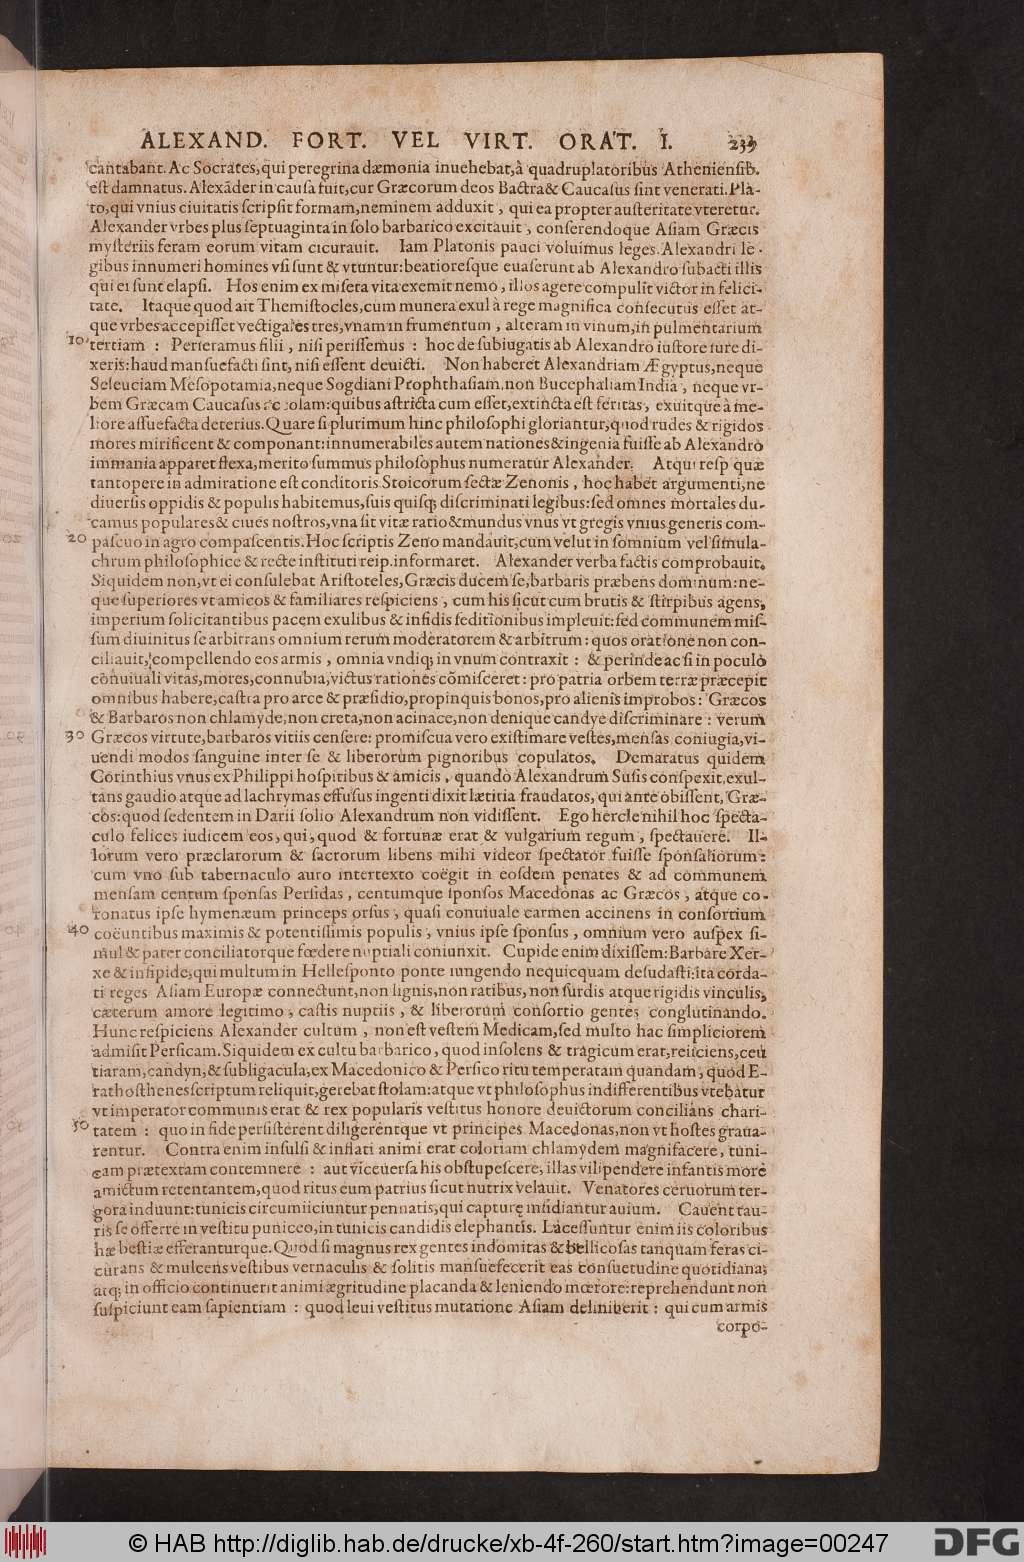 ALEXAND. FORT. VEL VIRT. ORAT. I. 239
cantabant. Ac Socrates, qui peregrina dæmonia inuehebat, à quadruplatoribus Atheniensib.
est damnatus. Alexãder in causa fuit, cur Græcorum deos Bactra & Caucasus sint venerati. Pla-
to, qui vnius ciuitatis scripsit formam, neminem adduxit, qui ea propter austeritate vteretur.
Alexander vrbes plus septuaginta in solo barbarico excitauit, conserendoque Asiam Græcis
mysteriis feram eorum vitam cicurauit. Iam Platonis pauci voluimus leges. Alexandri le-
gibus innumeri homines vsi sunt & vtuntur: beatioresque euaserunt ab Alexandro subacti illis
qui ei sunt elapsi. Hos enim ex misera vita exemit nemo, illos agere compulit victor in felici-
tate. Itaque quod ait Themistocles, cum munera exul à rege magnifica consecutus esset at-
que vrbes accepisset vectigales tres, vnam in frumentum, alteram in vinum, in pulmentarium
10 tertiam : Perieramus filii, nisi perissemus : hoc de subiugatis ab Alexandro iustore iure di-
xeris: haud mansuefacti sint, nisi essent deuicti. Non haberet Alexandriam Ægyptus, neque
Seleuciam Mesopotamia, neque Sogdiani Prophthasiam, non Bucephaliam India, neque vr-
bem Græcam Caucasus accolam: quibus astricta cum esset, extincta est feritas, exuitque à me-
liore assuefacta deterius. Quare si plurimum hinc philosophi gloriantur, quod rudes & rigidos
mores mirificent & componant: innumerabiles autem nationes & ingenia fuisse ab Alexandro
immania apparet flexa, merito summus philosophus numeratur Alexander. Atqui resp quæ
tantopere in admiratione est conditoris Stoicorum sectæ Zenonis, hoc habet argumenti, ne
diuersis oppidis & populis habitemus, suis quisq; discriminati legibus: sed omnes mortales du-
camus populares & ciues nostros, vna sit vitæ ratio & mundus vnus vt gregis vnius generis com-
20 pascuo in agro compascentis. Hoc scriptis Zeno mandauit, cum velut in somnium vel simula-
chrum philosophice & recte instituti reip. informaret. Alexander verba factis comprobauit.
Siquidem non, vt ei consulebat Aristoteles, Græcis ducem se, barbaris præbens dominum: ne-
que superiores vt amicos & familiares respiciens, cum his sicut cum brutis & stirpibus agens,
imperium solicitantibus pacem exulibus & infidis seditionibus impleuit: sed communem mis-
sum diuinitus se arbitrans omnium rerum moderatorem & arbitrum: quos oratione non con-
ciliauit, compellendo eos armis, omnia vndiq; in vnum contraxit : & perinde ac si in poculo
cõuiuali vitas, mores, connubia, victus rationes cõmisceret: pro patria orbem terræ præcepit
omnibus habere, castra pro arce & præsidio, propinquis bonos, pro alienis improbos: Græcos
& Barbaros non chlamyde, non creta, non acinace, non denique candye discriminare : verum
30 Græcos virtute, barbaros vitiis censere: promiscua vero existimare vestes, mensas coniugia, vi-
uendi modos sanguine inter se & liberorum pignoribus copulatos. Demaratus quidem
Corinthius vnus ex Philippi hospitibus & amicis, quando Alexandrum Susis conspexit, exul-
tans gaudio atque ad lachrymas effusus ingenti dixit lætitia fraudatos, qui ante obissent, Græ-
cos: quod sedentem in Darii solio Alexandrum non vidissent. Ego hercle nihil hoc specta-
culo felices iudicem eos, qui, quod & fortunæ erat & vulgarium regum, spectauere. Il-
lorum vero præclarorum & sacrorum libens mihi videor spectator fuisse sponsaliorum:
cum vno sub tabernaculo auro intertexto coëgit in eosdem penates & ad communem
mensam centum sponsas Persidas, centumque sponsos Macedonas ac Græcos, atque co-
ronatus ipse hymenæum princeps orsus, quasi conuiuale carmen accinens in consortium
40 coëuntibus maximis & potentissimis populis, vnius ipse sponsus, omnium vero auspex si-
mul & pater conciliatorque fœdere nuptiali coniunxit. Cupide enim dixissem: Barbare Xer-
xe & insipide, qui multum in Hellesponto ponte iungendo nequicquam desudasti; ita corda-
ti reges Asiam Europæ connectunt, non lignis, non ratibus, non surdis atque rigidis vinculis,
cæterum amore legitimo, castis nuptiis, & liberorum consortio gentes conglutinando.
Hunc respiciens Alexander cultum, non est vestem Medicam, sed multo hac simpliciorem
admisit Persicam. Siquidem ex cultu barbarico, quod insolens & tragicum erat, reiiciens, ceu
tiaram, candyn, & subligacula, ex Macedonico & Persico ritu temperatam quandam, quod E-
rathosthenes scriptum reliquit, gerebat stolam: atque vt philosophus indifferentibus vtebatur
vt imperator communis erat & rex popularis vestitus honore deuictorum concilians chari-
50 tatem : quo in fide persisterent diligerentque vt principes Macedonas, non vt hostes graua-
rentur. Contra enim insulsi & inflati animi erat coloriam chlamydem magnifacere, tuni-
cam prætextam contemnere : aut viceuersa his obstupescere, illas vilipendere infantis more
amictum retentantem, quod ritus eum patrius sicut nutrix velauit. Venatores ceruorum ter-
gora induunt: tunicis circumiiciuntur pennatis, qui capturę insidiantur auium. Cauent tau-
ris se offerre in vestitu puniceo, in tunicis candidis elephantis. Lacessuntur enim iis coloribus
hæ bestiæ efferanturque. Quod si magnus rex gentes indomitas & bellicosas tanquam feras ci-
curans & mulcens vestibus vernaculis & solitis mansuefecerit eas consuetudine quotidiana,
atq; in officio continuerit animi ægritudine placanda & leniendo mœrore: reprehendunt non
suspiciunt eam sapientiam : quod leui vestitus mutatione Asiam deliniberit : qui cum armis
corpo-
© HAB http://diglib.hab.de/drucke/xb-4f-260/start.htm?image=00247
DFG